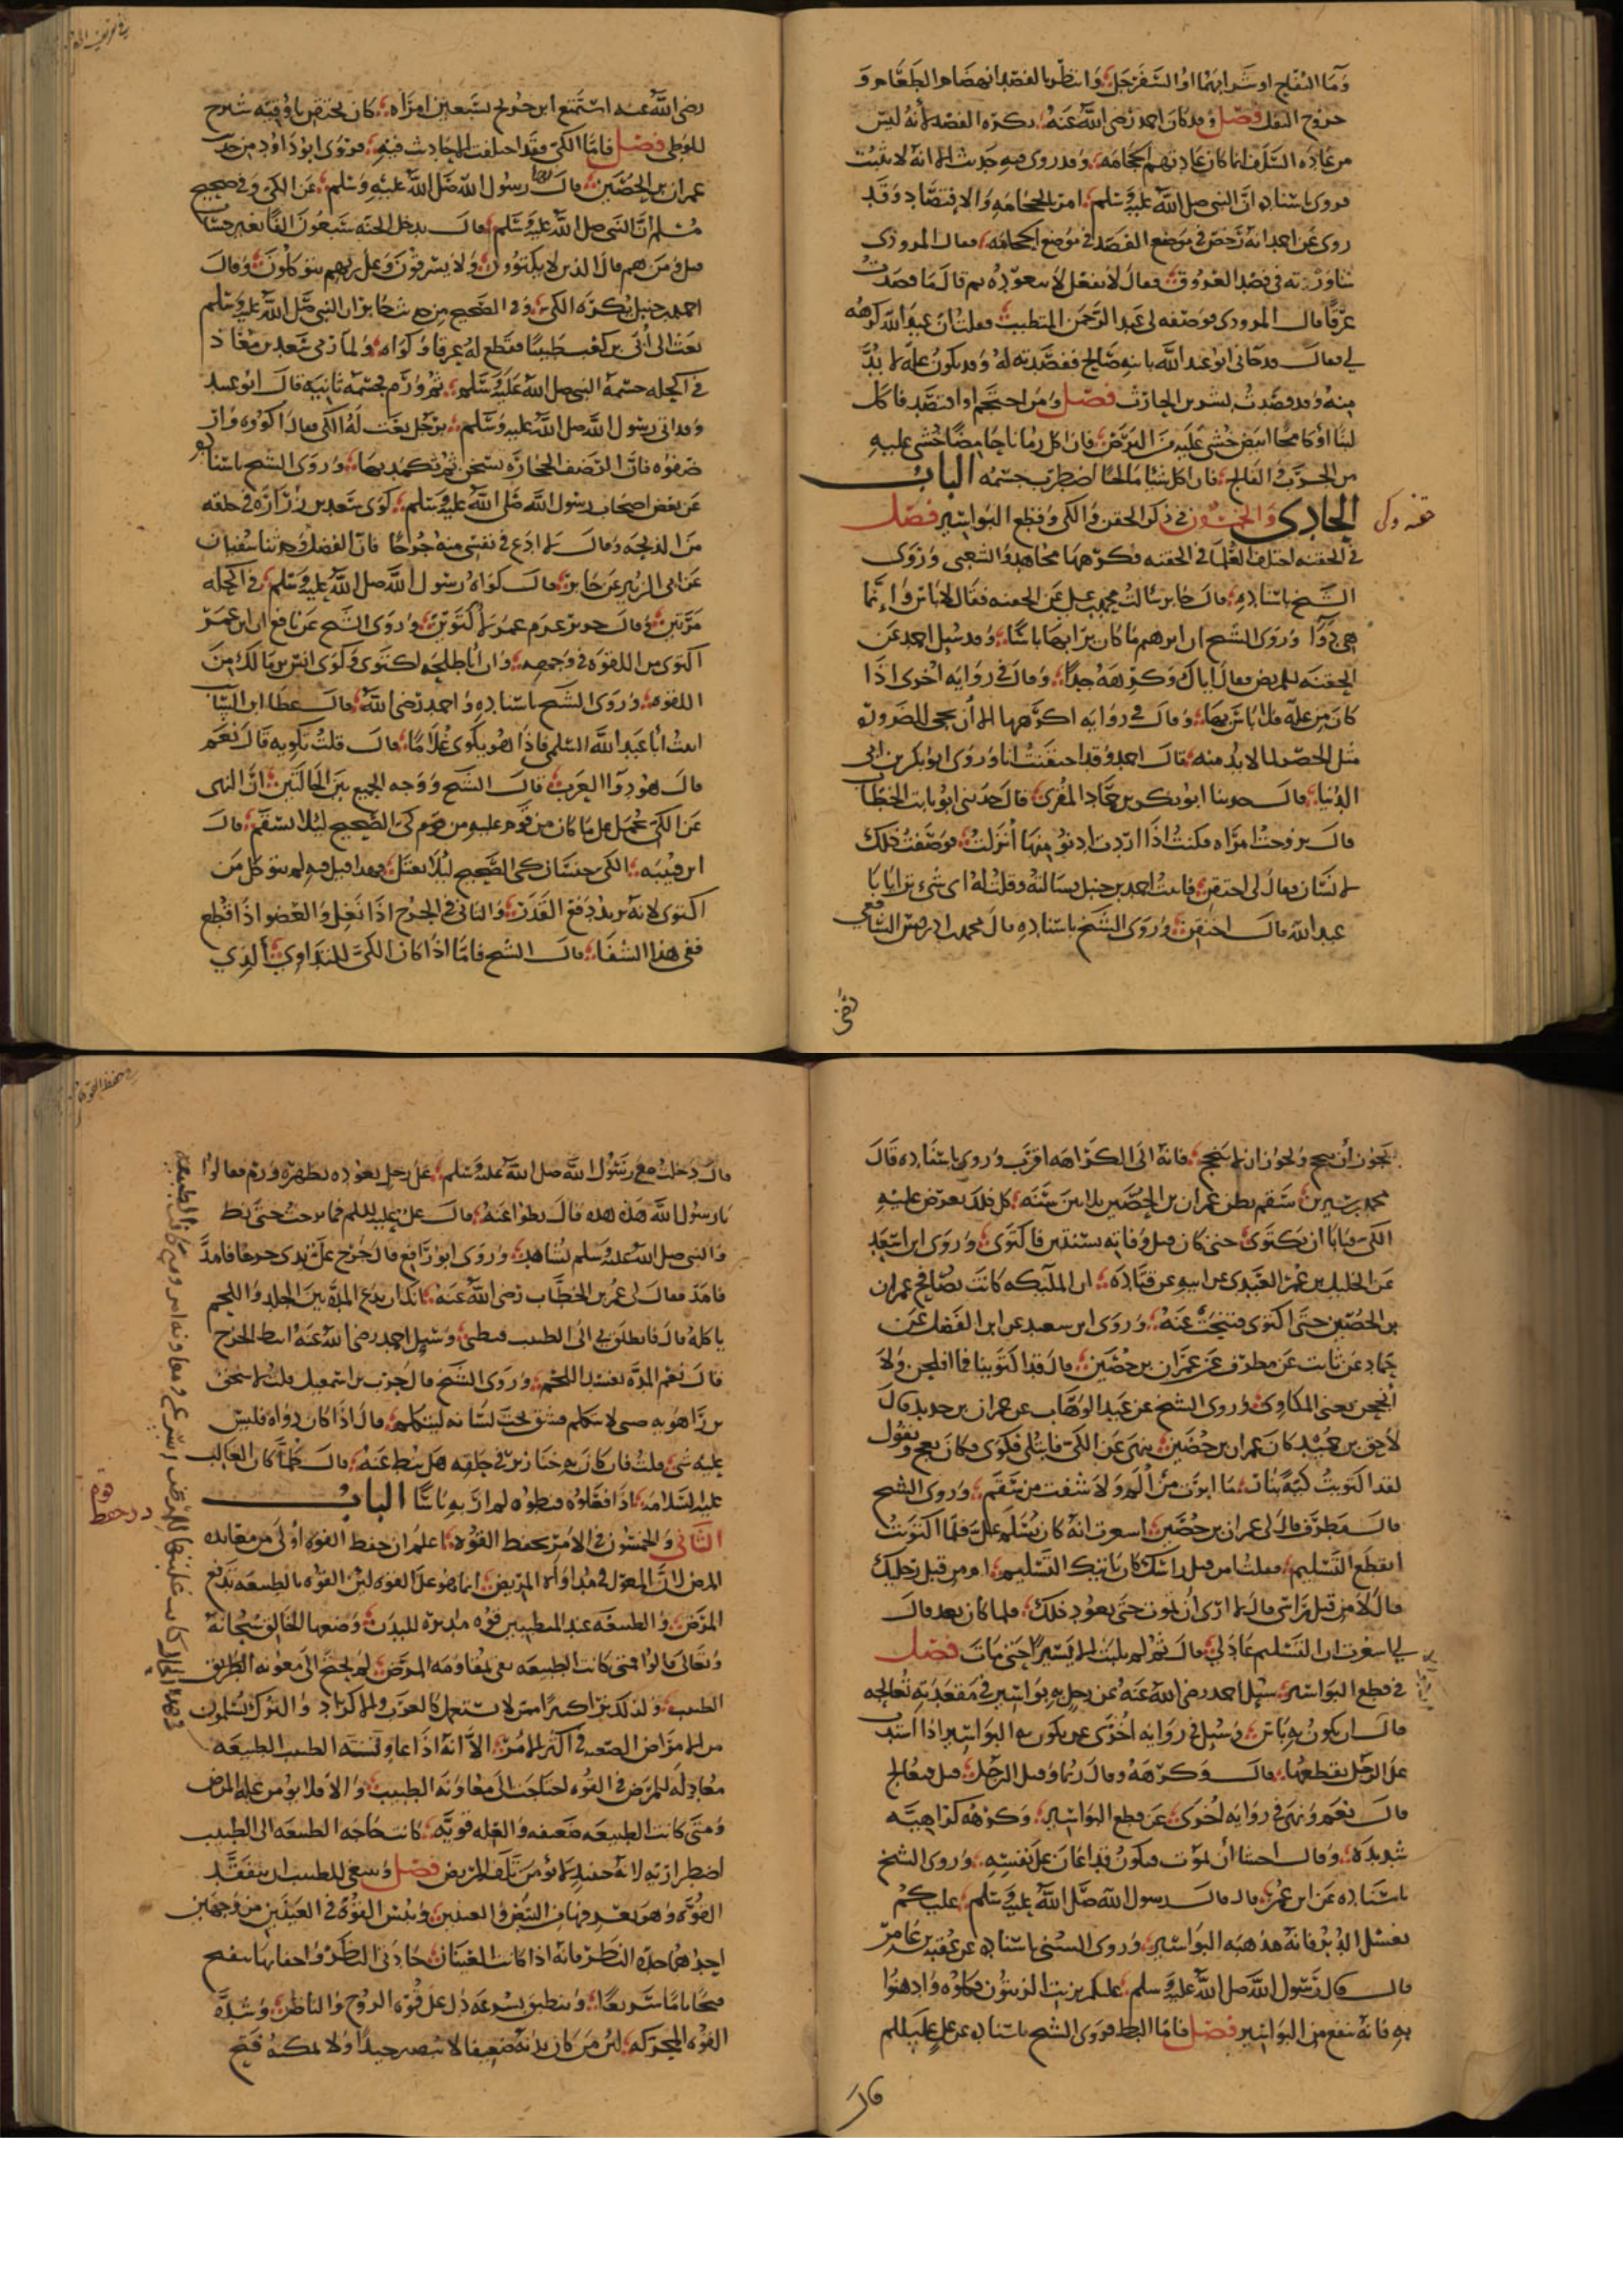 وَمَا التفّاح او شرابهما او السفرجل وانتظر بالفصد انهضام الطعام و
خروج الثفل فصل وقد كان احمد رضي الله عنه يكره الفصد لأنه ليس
من عادة السلف انما كان عادتهم الحجامة وقد روي فيه حديث الا انه لا يثبت
فروى باسناده ان النبي صلى الله عليه وسلم امر بالحجامة والافتصاد وقد
روى عن احمد انه رخص في موضع الفصد في موضع الحجامة فقال المروذي
شاورته في فصد العروق فقال لا تفعل لا تتعوده ثم قال ما فصدت
عرقا قال المروذي فوصفه لي عبد الرحمن المتطبب فقلت ان عبد الله كرهه
لي فقال قد جاني ابو عبد الله بابنه صالح ففصدته له وقد يكون علة لا بد
منه وقد فصدت بشر بن الحارث فصل ومن احتجم او افتصد فاكل
لبنا او كامخا ابيض خشي عليه من البرص فان اكل رمانا حامضا خشي عليه
من الجرب والفالج فان اكل شيا مالحا اضطرب جسمه الباب
الحادي والخمسون في ذكر الحقن والكي وقطع البواسير فصل
حقنه وكي
في الحقنه اختلف العلما في الحقنه فكرهها مجاهد والشعبي وروى
الشيخ باسناده قال جابر سالت محمد بن علي عن الحقنه فقال لا باس وانما
هي دوا وروى الشيخ ان ابرهيم ما كان يرا بها باسا وقد سيل احمد عن
الحقنه للمريض فقال اياك وكرهه جدا وقال في روايه اخرى اذا
كان من علة فلا باس بها وقال في روايه اكرهها الا أن يجي الضروره
مثل الحصر لما لا بد منه قال احمد وقد احتقنت انا وروى ابو بكر بن ابي
الدنيا قال حدثنا ابو بكر بن حماد المقري قال حدثني ابو ثابت الخطاب
قال تزوجت امراه فكنت اذا اردت ادنو منها أنزلت فوصفت ذلك
لانسان فقال لي احتقن فاتيت احمد بن حنبل فسالته وقلت له اى شي ترا يا ابا
عبد الله قال احتقن وروى الشيخ باسناده قال محمد بن ادريس الشافعي
رضي
رضي الله عنه استمتع ابن جريج بسبعين امراه كان يحتقن باوقيه شيرج
للوطى فصل فاما الكي فقد اختلفت الاحاديث فيه فروى ابو داود من حديث
عمران بن الحصين قال نها رسول الله صلى الله عليه وسلم عن الكي وفي صحيح
مسلم ان النبي صلى الله عليه وسلم قال يدخل الجنه سبعون الفا بغير حساب
قيل ومن هم قال الذين لا يكتوون ولا يسترقون وعلى ربهم يتوكلون وقال
احمد بن حنبل يكره الكي وفي الصحيح من حديث جابر ان النبي صلى الله عليه وسلم
بعث الى أبي بن كعب طبيبا فقطع له عرقا وكواه ولما رمي سعد بن معاذ
في اكحله حسمه النبي صلى الله عليه وسلم ثم ورم فحسمه ثانيه قال ابو عبيد
وقد اتي رسول الله صلى الله عليه وسلم برجل نعت له الكي فقال اكووه او ار
ضفوه فان الرضف الحجاره تسخن ثم تكمد بها وروى الشيخ باسناده
عن بعض اصحاب رسول الله صلى الله عليه وسلم كوى سعد بن زراره في حلقه
من الذبحه وقال لا ادع في نفسي منه حرجا فان الفضل وحدثنا سفيان
عن ابي الزبير عن جابر قال كواه رسول الله صلى الله عليه وسلم في اكحله
مرتين وقال جرير عزم عمر لأكتوين وروى الشيخ عن نافع ان ابن عمر
اكتوى من اللقوه في وجهه وان ابا طلحه اكتوى وكوى انس بن مالك من
اللقوه وروى الشيخ باسناده واحمد رضي الله قال عطا ابن السائب
اتيت أبا عبد الله السلمي فاذا هو يكوي غلاما قال قلت تكويه قال نعم
قال هو دوا العرب قال الشيخ ووجه الجمع بين الحالتين ان النهي
عن الكي محمل على ما كان من قوم عليه من قوم كي الصحيح ليلا السقم قال
ابن قتيبه الكي جنسان كي الصحيح ليلا يعتل فهذا قيل فيه لم يتوكل من
اكتوى لانه يريد دفع القدر والثاني في الجرح اذا نغل والعضو اذا قطع
ففي هذا الشفا قال الشيخ فاما اذا كان الكي للتداوي الذي
يجوز أن ينجح ويجوز ان لا ينجح فانه الى الكراهه اقرب وروى باسناده قال
محمد بن سيرين سقم بطن عمران بن الحصين ثلاثين سنه كل ذلك يعرض عليه
الكي فيابا ان يكتوى حتى كان قبل وفاته بسنتين فاكتوى وروى ابن اسعد
عن الخليل بن عمر العبدي عن ابيه عن قتاده ان الملئيكه كانت تصافح عمران
بن الحصين حتى اكتوى فتنحت عنه وروى ابن سعيد عن ابن الفضل عن
حماد عن ثابت عن مطرف عن عمران بن حصين قال قد اكتوينا فما افلحن ولا
أنجحن يعني المكاوي وروى الشيخ عن عبد الوهاب عن عمران بن حدير قال
لاحق بن حميد كان عمران بن حصين ينهى عن الكي فابتلي فكوى فكان يعج ويقول
لقد اكتويت كية بنار ما ابرت من ألم ولا شفت من سقم وروى الشيخ
قال مطرف قال لي عمران بن حصين اشعرت انه كان يسلم علي فلما اكتويت
انقطع التسليم فقلت امن قبل راسك كان ياتيك التسليم ام من قبل رجليك
قال لا من قبل راسي قال لا ارى ان تموت حتى يعود ذلك فلما كان بعد قال
لي اشعرت ان التسليم عاد لي قال ثم لم يلبث الا يسيرا حتى مات فصل
في قطع البواسير سيل احمد رضي الله عنه عن رجل به بواسير في مقعدته تعالجه
قال ان يكون به باس وسيل في روايه اخرى عمن يكون به البواسير اذا اشتد
على الرجل يقطعها قال وكرهه وقال ربما وقيل الرجل قيل فيعالج
قال نعم ونهى في روايه اخرى عن قطع البواسير وكرهه كراهيه
شديده وقال اخشا أن يموت فيكون قد اعان على نفسه وروى الشيخ
باسناده عن ابن عمر قال قال رسول الله صلى الله عليه وسلم عليكم
بغسل الدبر فانه مذهبه البواسير وروى السني باسناده عن عقبه بن عامر
قال قال رسول الله صلى الله عليه وسلم عليكم بزيت الزيتون فكلوه وادهنوا
به فانه ينفع من البواسير فصل فاما البط فروى الشيخ باسناده عن علي عليه السلم
قال
قال دخلت مع رسول الله صلى الله عليه وسلم على رجل نعوده بظهره ورم فقالوا
يا رسول الله هذه مده قال بطوا عنه قال علي عليه السلم فما برحت حتى بط
والنبي صلى الله عليه وسلم شاهد وروى ابو رافع قال خرج على ثدي خرجا فامد
فامد فقال لي عمر بن الخطاب رضي الله عنه لا تذر تدع المده بين الجلد واللحم
ياكله قال فانطلق بي الى الطبيب فبطني وسيل احمد رضي الله عنه ابط الجرح
قال نعم المده تفسد اللحم وروى الشيخ قال حرب بن اسمعيل قلت لاسحق
بن راهويه صبي لا يتكلم فشق تحت لسانه ليتكلم قال اذا كان دواه فليس
عليه شي قلت فان كان به خنازير في حلقه هل يبط عنه قال كلما كان الغالب
عليه السلامه اذا فعلوه فبطوه لم ار به باسا الباب
الثاني والخمسون في الامر بحفظ القوه اعلم ان حفظ القوه أولى من مقابله
در حفظ قوه
المرض لان المعول في مداواه المريض انما هو على القوه لان القوه بالطبيعه تدفع
المرض والطبيعه عند المتطببين قوه مدبره للبدن وضعها الخالق سبحانه
وتعالى قالوا فمتى كانت الطبيعه تفي بمقاومه المرض لم يحتج الى معونه الطريق
الطبيب ولذلك نرا كثيرا ممن لا يستعمل كالعرب والاكراد والترك يسلمون
من الامراض الصعبه في اكثر الامر الا انه اذا عاونته الطبيب الطبيعه
معادله للمرض في القوه احتاجت الى معاونه الطبيب والا فلا يؤمن غلبه المرض
ومتى كانت الطبيعه ضعيفه والعله قويه كانت حاجه الطبيعه الى الطبيب
اضطراريه لانه حينيذ لا يؤمن تلف المريض فصل وينبغي للطبيب ان يتفقد
القوه وهو يعرفها في النبض والعينين وتبين القوه في العينين من وجهين
احدهما حده الناظر فانه اذا كانت العينان حادتي النظر واجفانها تنفتح
فتحا تاما سريعا وتنطبق بسرعه دل على قوه الروح والناظر وشده
القوه المحركه لان من كان بدنه ضعيفا لا يبصر جيدا ولا يمكنه فتح